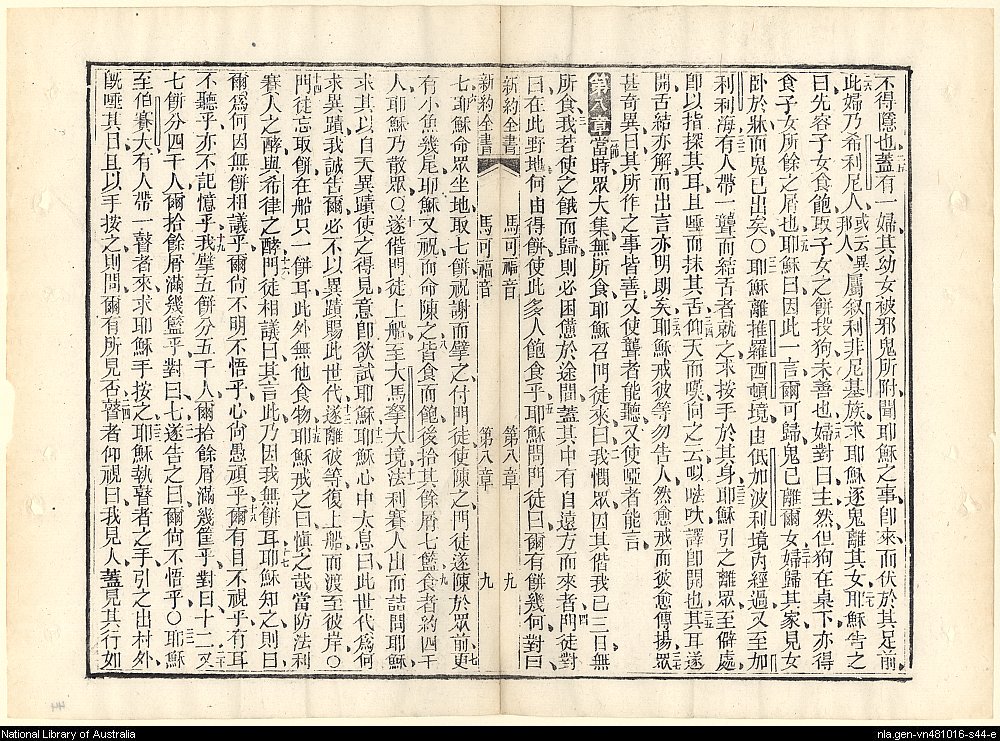 不得隱也蓋有一婦其幼女被邪鬼所附聞耶穌之事卽來而伏於其足前
此婦乃希利尼人或云異那人屬叙利非尼基族求耶穌逐鬼離其女耶穌告之
曰先容子女食飽取子女之餅投狗未善也婦對曰主然但狗在桌下亦得
食子女所餘之屑也耶穌曰因此一言爾可歸鬼已離爾女婦歸其家見女
臥於牀而鬼已出矣〇耶穌離推羅西頓境由低加波利境內經過又至加
利利海有人帶一聾而結舌者就之求按手於其身耶穌引之離眾至僻處
卽以指探其耳且唾而抹其舌仰天而嘆向之云㕽噠吠譯卽開也其耳遂
開舌結亦解而出言亦明明矣耶穌戒彼等勿告人然愈戒而彼愈傳揚眾
甚奇異曰其所作之事皆善又使聾者能聽又使啞者能言
第八章當時眾大集無所食耶穌召門徒來曰我憫眾因其偕我已三日無
所食我若使之餓而歸則必困憊於途間蓋其中有自遠方而來者門徒對
曰在此野地何由得餅使此多人飽食乎耶穌問門徒曰爾有餅幾何對曰
新約全書 馬可福音 第八章 九
新約全書 馬可福音 第八章 九
七耶穌命眾坐地取七餅祝謝而擘之付門徒使陳之門徒遂陳於眾前更
有小魚幾尾耶穌又祝而命陳之皆食而飽後拾其餘屑七籃食者約四千
人耶穌乃散眾〇遂偕門徒上船至大馬拏大境法利賽人出而詰問耶穌
求其以自天異蹟使之得見意卽欲試耶穌耶穌心中太息曰此世代爲何
求異蹟我誠告爾必不以異蹟賜此世代遂離彼等復上船而渡至彼岸〇
門徒忘取餅在船只一餅耳此外無他食物耶穌戒之曰愼之哉當防法利
賽人之酵與希律之酵門徒相議曰其言此乃因我無餅耳耶穌知之則曰
爾爲何因無餅相議乎爾尙不明不悟乎心尙愚頑乎爾有目不視乎有耳
不聽乎亦不記憶乎我擘五餅分五千人爾拾餘屑滿幾筐乎對曰十二又
七餅分四千人爾拾餘屑滿幾籃乎對曰七遂告之曰爾尙不悟乎〇耶穌
至伯賽大有人帶一瞽者來求耶穌手按之耶穌執瞽者之手引之出村外
旣唾其目且以手按之則問爾有所見否瞽者仰視曰我見人蓋見其行如
National Library of Australia
nla.gen-vn481016-s44-e